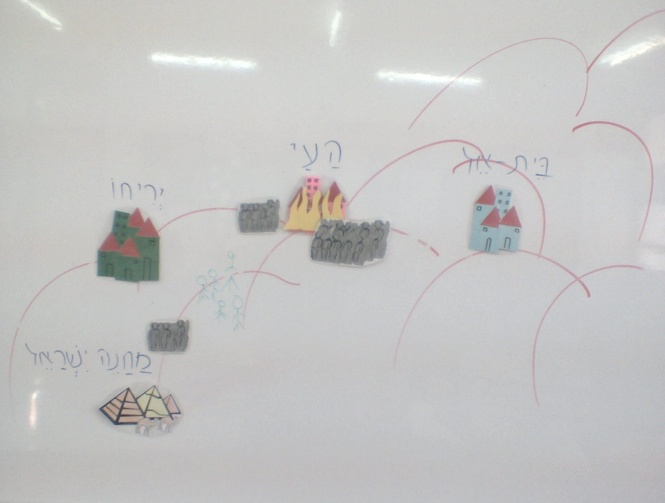 הָעַי
בֵּית-אֵל
יְרִיחוֹ
מַחֲנֵה יִשְׂרָאֵל